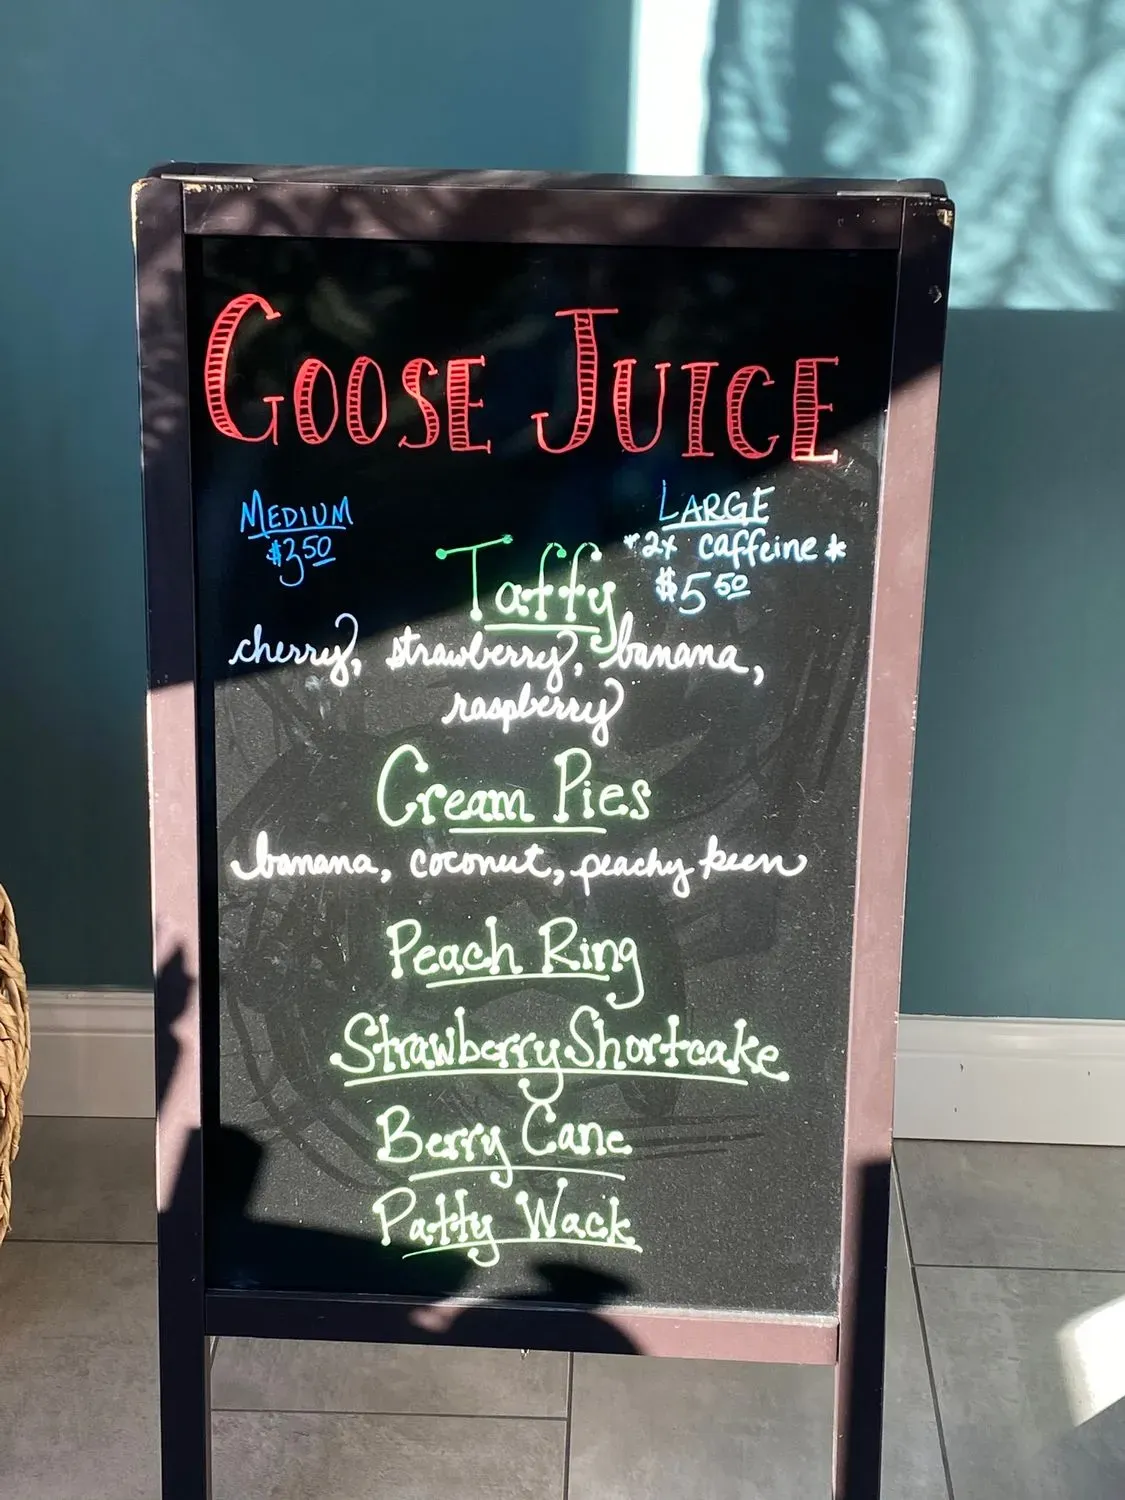 GOOSE JUICE
MEDIUM
$3.50
LARGE
*2x caffeine*
$5.50
Taffy
cherry, strawberry, banana,
raspberry
Cream Pies
banana, coconut, peachy keen
Peach Ring
Strawberry Shortcake
Berry Cane
Patty Wack